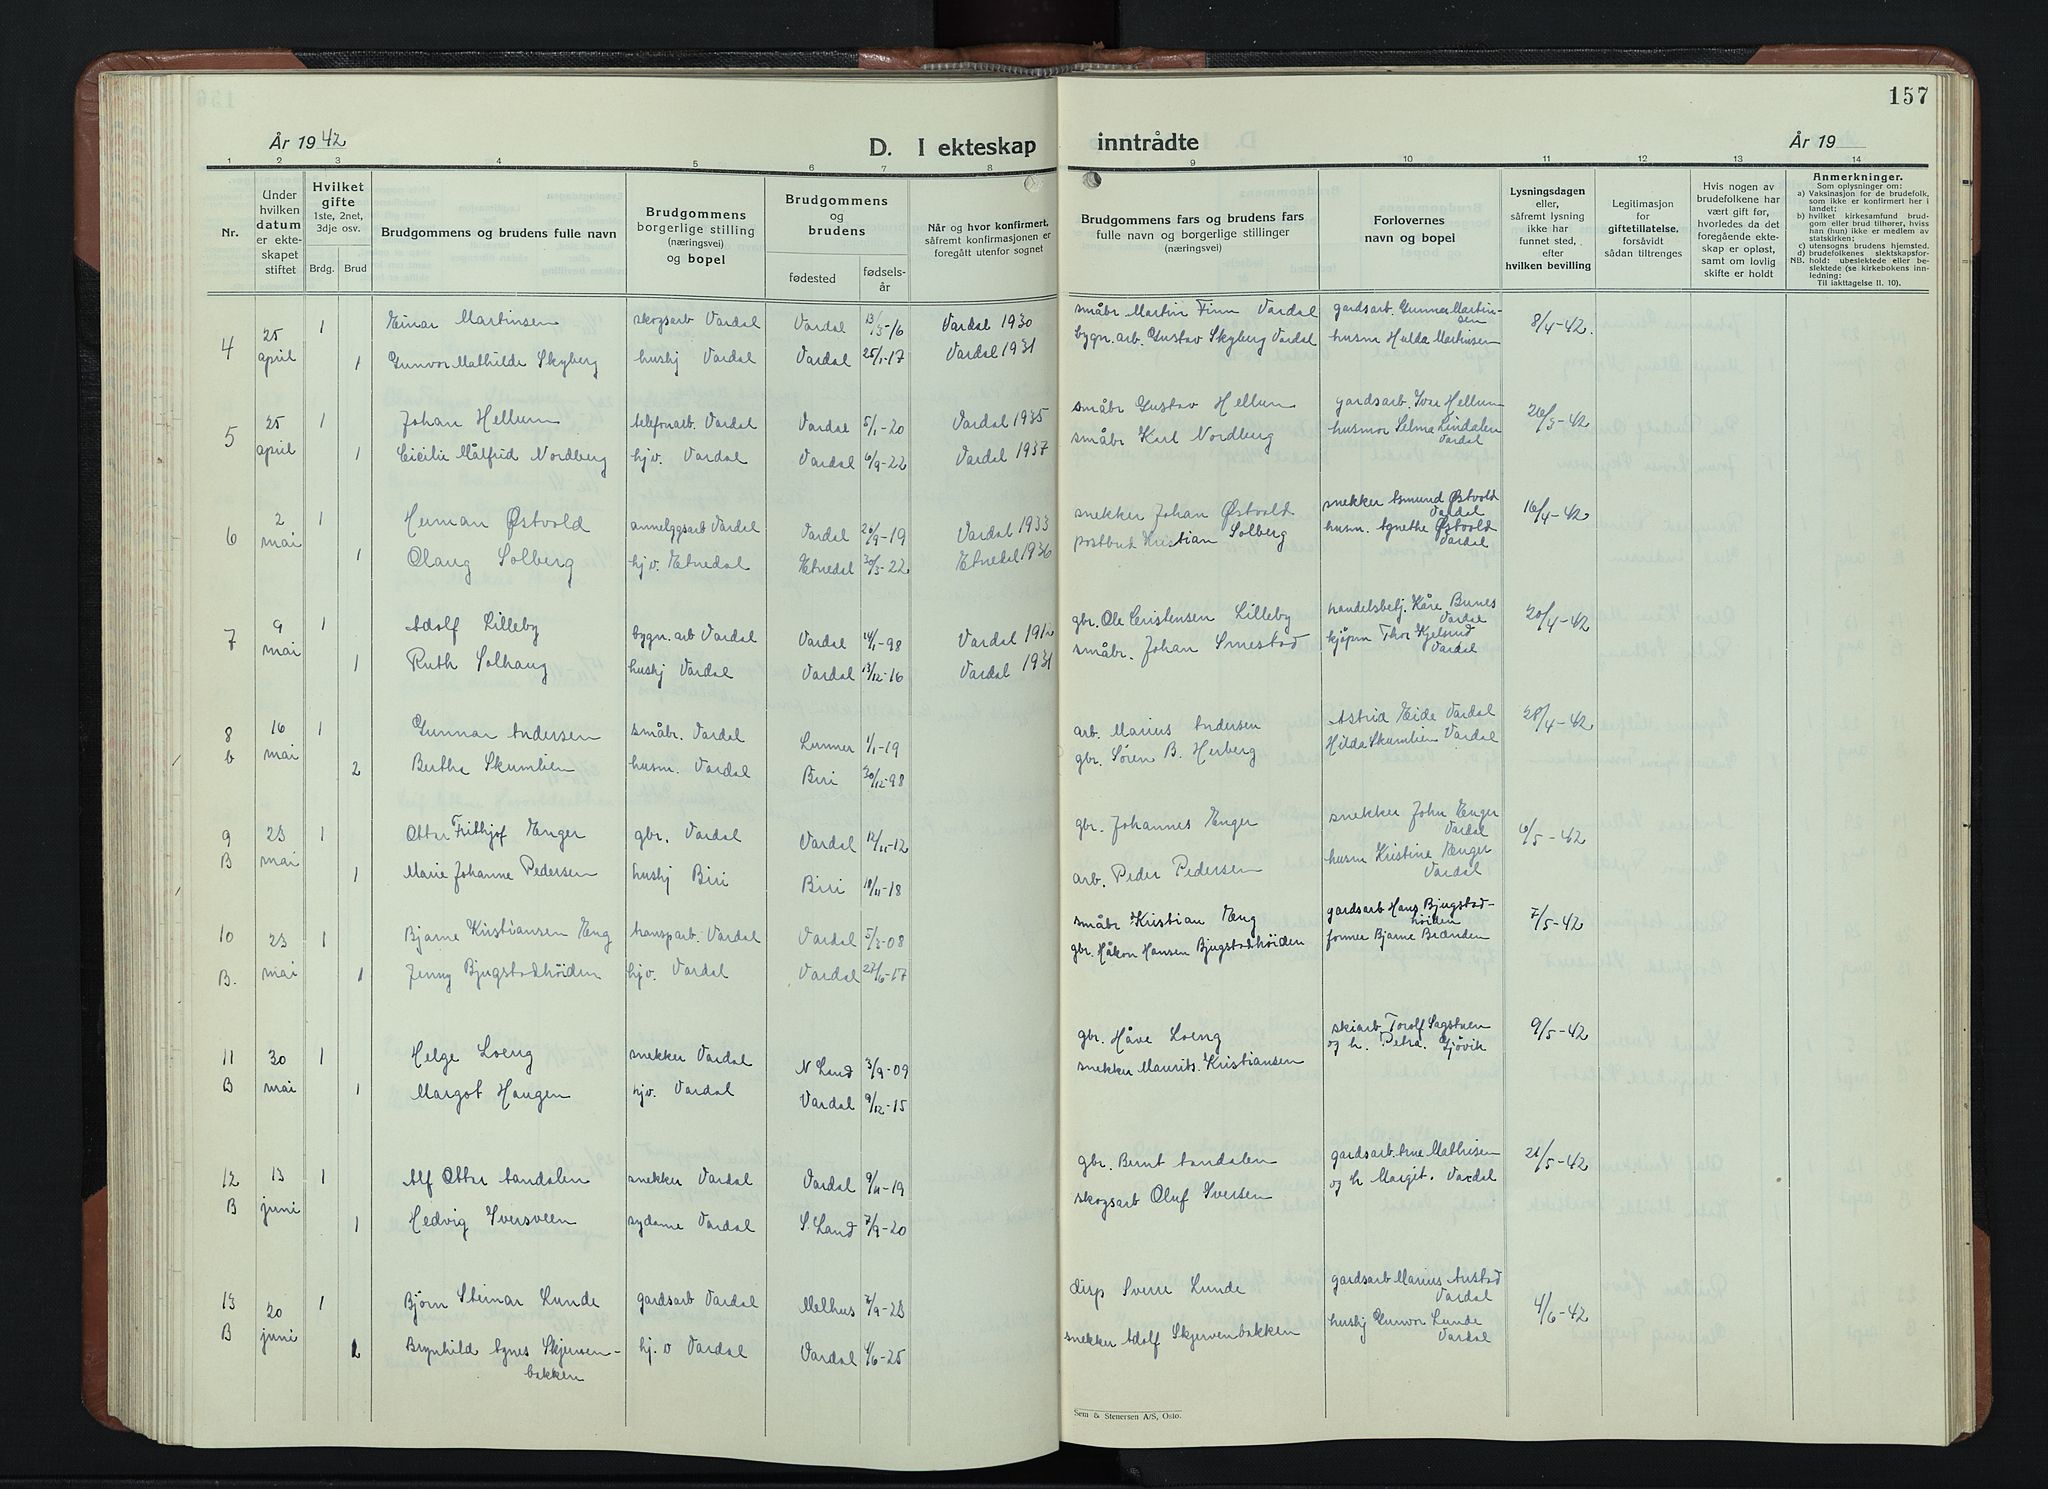 157
År 1942
D. I ekteskap inntrådte
År 19
1 2 3 4 5 6 7 8 9 10 11 12 13 14
Nr.
Under hvilken datum er ekteskapet stiftet
Hvilket gifte
1ste, 2net, 3dje osv.
Brdg. Brud
Brudgommens og brudens fulle navn
Brudgommens borgerlige stilling (næringsvei) og bopel
Brudgommens og brudens
fødested
fødselsår
Når og hvor konfirmert, såfremt konfirmasjonen er foregått utenfor sognet
Brudgommens fars og brudens fars fulle navn og borgerlige stillinger (næringsvei)
Forlovernes navn og bopel
Lysningsdagen eller, såfremt lysning ikke har funnet sted, efter hvilken bevilling
Legitimasjon for giftetillatelse, forsåvidt sådan tiltrenges
Hvis nogen av brudefolkene har vært gift før, hvorledes da det foregående ekteskap er opløst, samt om lovlig skifte er holdt
Anmerkninger.
Som oplysninger om:
a) Vaksinasjon for de brudefolk, som ikke er konfirmert her i landet;
b) hvilket kirkesamfund brudgom eller brud tilhører, hviss han (hun) ikke er medlem av statskirken;
c) utensogns brudens hjemsted.
d) brudefolkenes slektskapsforhold: ubeslektede eller beslektede (se kirkebokens innledning:
NB. Til iakttagelse II. 10).
4 25 april 1 Einar Martinsen skogsarb Vardal Vardal 13/5-16 Vardal 1930 småbr Martin Finn Vardal gardsarb. Gunnar Martinsen 8/4-42.
1 Gunvor Mathilde Skyberg hushj Vardal Vardal 25/1-17 Vardal 1931 bygn. arb. Gustav Skyberg Vardal husm Hulda Martinsen
5 25 april 1 Johan Hellum telefonarb. Vardal Vardal 5/1-20 Vardal 1935 småbr Gustav Hellum gardsarb. Iver Hellum 26/3-42
1 Cicilie Målfrid Nordberg hjv. Vardal Vardal 6/9-22 Vardal 1937 småbr Karl Nordberg husmor Selma Lindalen Vardal
6 2 mai 1 Herman Østvold anneleggsarb Vardal Vardal 20/9-19 Vardal 1933 snekker Johan Østvold snekker Asmund Østvold Vardal 16/4-42
1 Olaug Solberg hjv. Etnedal Etnedal 30/5-22 Etnedal 1936 postbud Kristian Solberg husm. Agnethe Østvold Vardal
7 9 mai 1 Adolf Lilleby bygn. arb Vardal Vardal 14/1-98 Vardal 1912 gbr. Ole Cristensen Lilleby handelsbetj. Kåre Bunes Vardal 20/4-42
1 Ruth Solhaug hushj Vardal Vardal 13/12-16 Vardal 1931 småbr. Johan Smestad kjøpm Thor Kjelsrud Vardal
8 b 16 mai 1 Gunnar Andersen småbr. Vardal Lunner 1/1-19 arb. Marius Andersen Astrid Eide Vardal 28/4-42
2 Bertha Skumlien husm. Vardal Biri 30/12-98 gbr. Søren B. Herberg Hilda Skumlien Vardal
9 B 23 mai 1 Ottar Frithjof Enger gbr. Vardal Vardal 12/11-12 gbr. Johannes Enger snekker John Enger Vardal 6/5-42
1 Marie Johanne Pedersen hushj Biri Biri 18/11-18 arb. Peder Pedersen husm Kristine Enger Vardal
10 B. 23 mai 1 Bjarne Kristiansen Eng transparb. Vardal Vardal 5/3-08 småbr Kristian Eng gardsarb Hans Bjugstadhöiden 7/5-42
1 Jenny Bjugstadhöiden hjv. Vardal Vardal 27/6-17 gbr. Håkon Hansen Bjugstadhöiden former Bjarne Brenden
11 B 30 mai 1 Helge Loeng snekker Vardal N Land 3/9-09 gbr. Håve Loeng skiarb. Torolf Sagstuen 9/5-42
1 Margot Haugen hjv. Vardal Vardal 9/12-15 snekker Maurits. Kristiansen og h. Petra. Gjövik
12 B 13 juni 1 Alf Ottar Aandalen snekker Vardal Vardal 9/11-19 gbr. Bernt Aandalen gardsarb. Arne Mathisen 21/5-42
1 Hedvig Iversveen sydame Vardal S. Land 7/9-20 skogsarb Oluf Iversen og h Margit. Vardal
13 B 20 juni 1 Björn Steinar Lunde gardsarb Vardal Melhus 7/9-23 disp Sverre Lunde gardsarb Marius Austad Vardal 4/6-42
Brynhild Agnes Skjervenbakken hj. v Vardal Vardal 4/6-25 snekker Adolf Skjervenbakken hushj Gunvor Lunde Vardal
Sem & Stenersen A/S, Oslo.